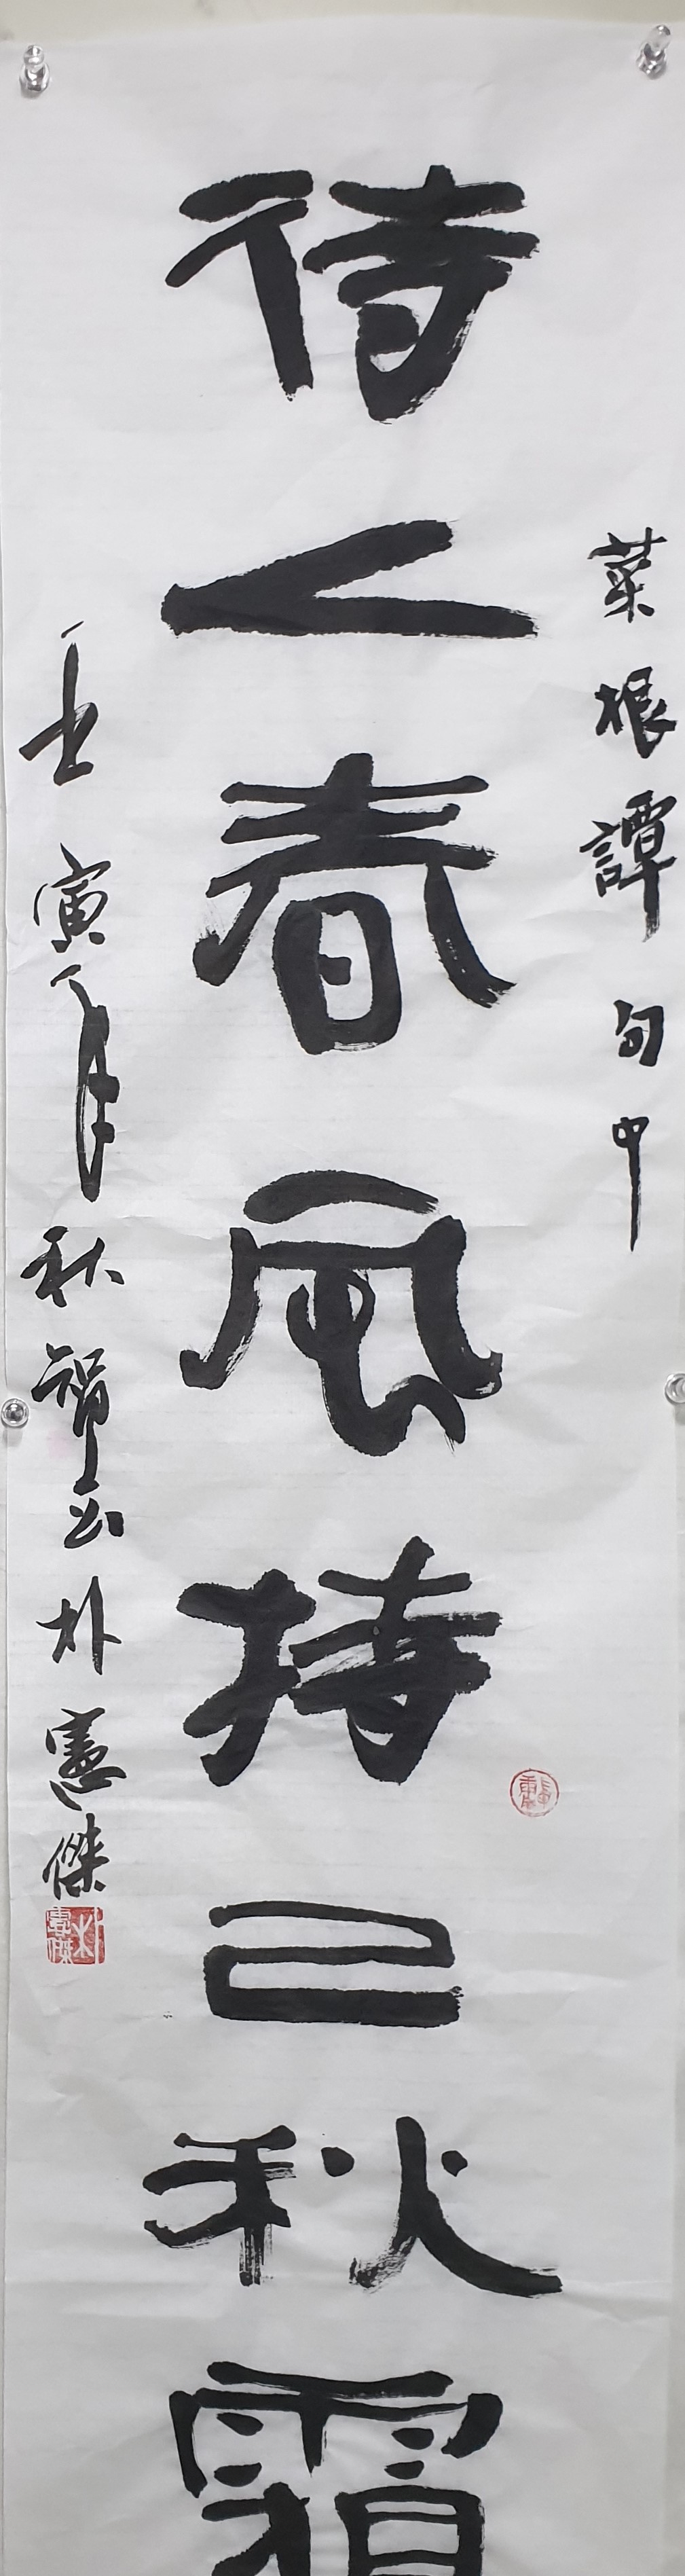 菜根譚句中
待人春風持己秋霜
壬寅年秋智山朴憲傑
朴憲傑